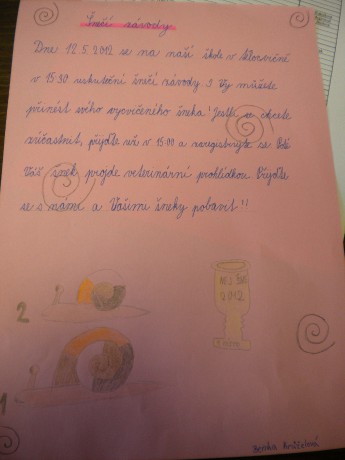 Šnečí závody
Dne 12.5.2012 se na naší škole v
v 15:30 uskuteční šnečí závody. I Vy můžete
přinést svého vycvičeného šneka! Jestli se chcete
zúčastnit, přijďte už v 15:00 a zaregistrujte se. Poté
Váš šnek projde veterinární prohlídkou. Přijďte
se s námi a Vašimi šneky pobavit!!
2
2012
1